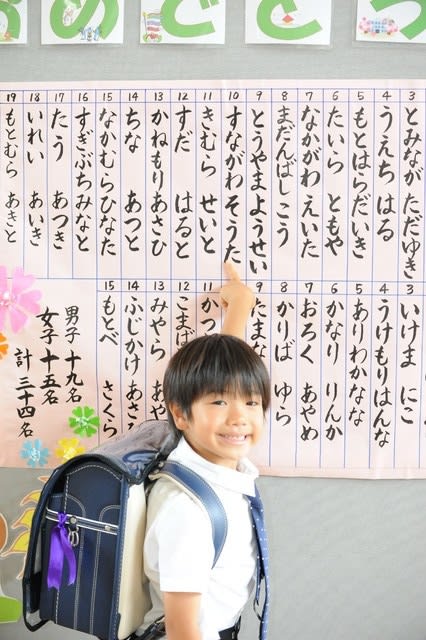 3 とみなが ただゆき
4 うえち はる
5 もとはらだいき
6 たいら ともや
7 なかがわ えいた
8 まだんばし こう
9 とうやま ようせい
10 すながわ そうた
11 きむら せいと
12 すだ はると
13 かねもり あさひ
14 ちな あつと
15 なかむらひなた
16 すぎぶちみなと
17 たう あつき
18 いれい あいき
19 もとむら あきと
3 いけま にこ
4 うけもりはんな
5 ありわかなな
6 かなり りんか
7 おろく あやめ
8 かりば ゆら
9 たまな
11 かつ
12 こまげ
13 みやら あや
14 ふじかけ あさ
15 もとべ さくら
男子 十九名
女子 十五名
計 三十四名